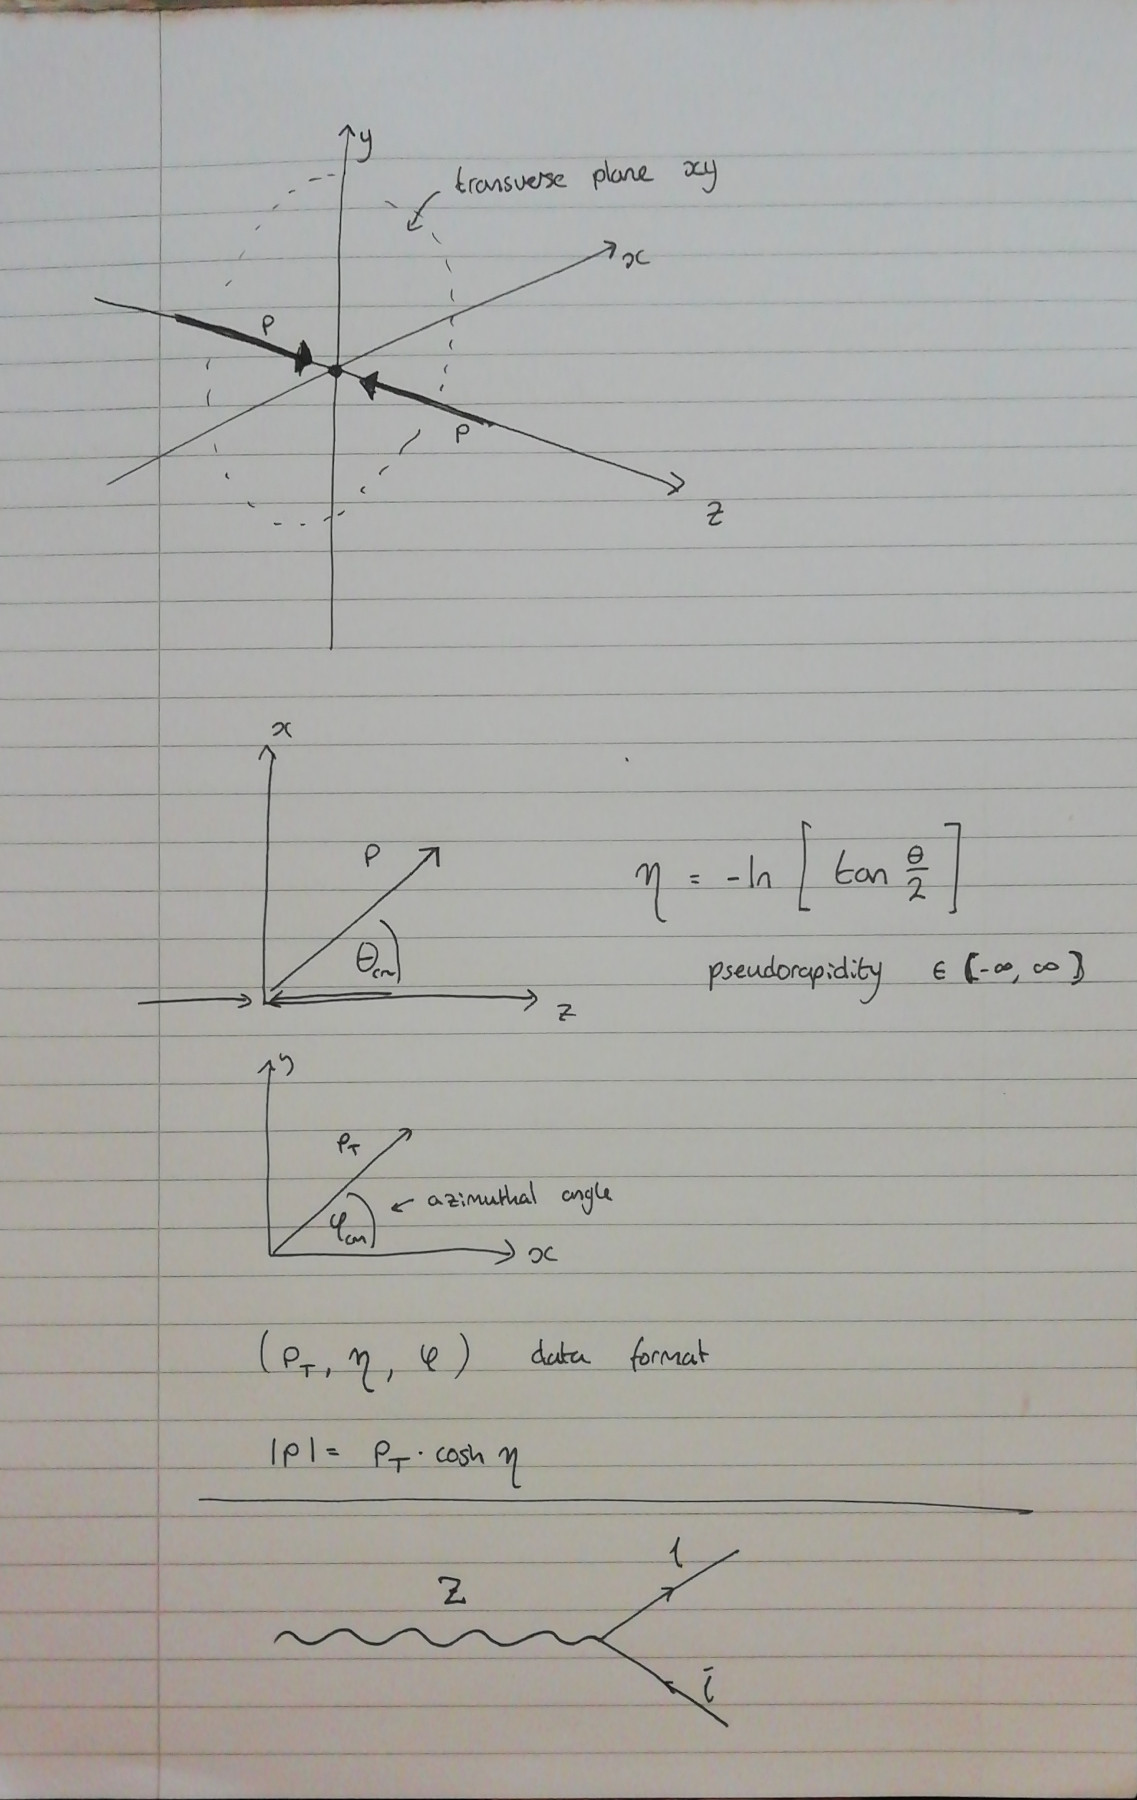 y
transverse plane xy
x
p
p
z
x
p
η = -ln [ tan θ/2 ]
θcm
pseudorapidity ∈ [-∞, ∞]
z
y
pT
azimuthal angle
φcm
x
(pT, η, φ) data format
|p| = pT · cosh η
l
Z
l̄